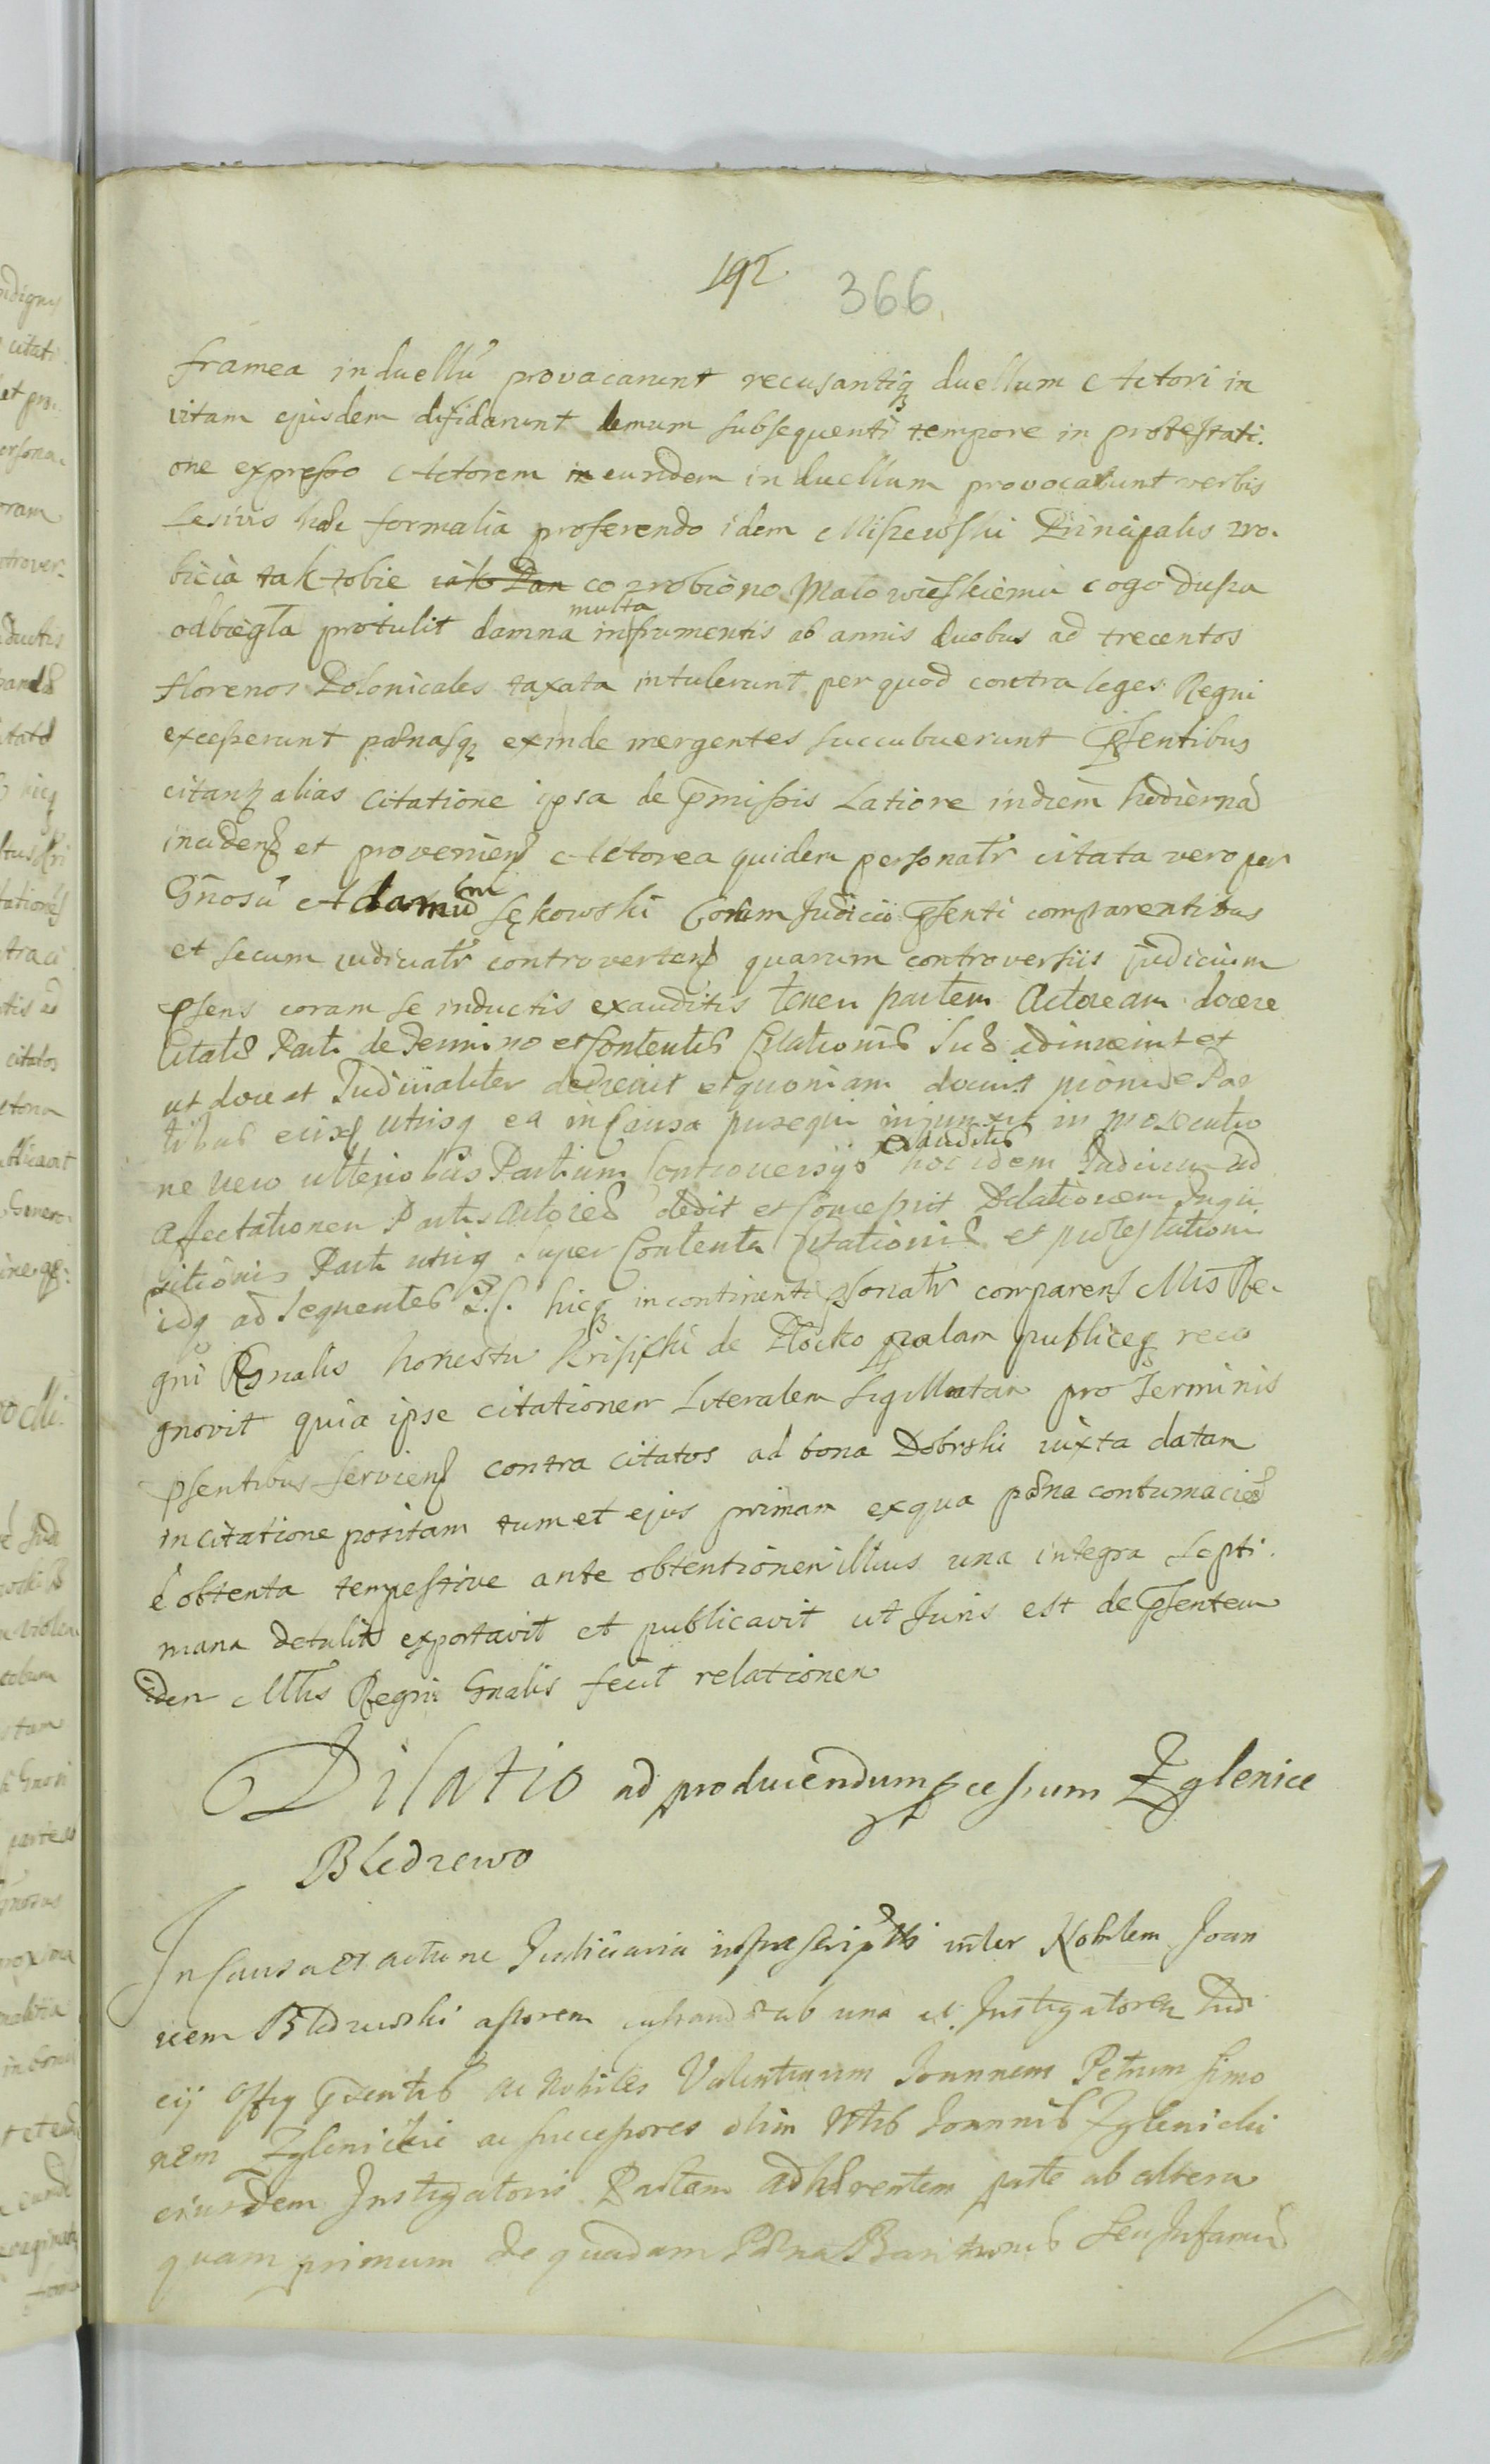 192 366
framea in duellū provocarunt recusantiq duellum Actori in
vitam ejusdem difidarunt demum subsequenti tempore in protestati.
one expresso Actorem in eundem in duellum provocarunt verbis
Lesivis hæc formalia proferendo idem Miszewski Principalis zro.
bićia tak tobie iako Pan co zrobiono Małowieskiemu c ogo dusza
multa
odbiegła protulit damna in frumentis ab annis duobus ad trecentos
florenos Polonicales taxata intulerunt per quod contra leges Regni
excesserunt pænasq exinde mergentes succubuerunt Psentibus
alias citatione ipsa de pmissis Latiore in diem hodiernā
inciden et provenien Actorea quidem personalr citata vero per
Gnosū Adamū Sękowski Coram Judicio Psenti comparentibus
et secum iudicialr controverten quarum controversiis judicium
psens coram se inductis exauditis partem Actoream docere
Citatæ Parti de Termino et Contentis Citationis suæ adinvenit et
ut doceat Judicialiter decrevit et quoniam docuit proinde Par
tibus utrisq ea in Causa injunxit in prosecutio
exauditis
ne vero ulterioribus Partium Controversijs hoc idem Judicium ad
affectationem Partis Actoreæ dedit et Concessit Dilationem Inqui
sitionis Parti utriq super Contenta Citationis et protestationis
idq ad sequentes hicq in continenti psonalr comparen Mis Re.
gni Gnalis honestu de Płocko palam publiceq reco
gnovit quia ipse citationem Literalem sigillatam pro Terminis
psentibus servien contra citatos ad bona Dobrski iuxta datam
in citatione positam tum et ejus primam ex qua pæna contumaciæ
e obtenta tempestive ante obtentionem illius una integra septi.
mana detulit exportavit et publicavit ut Juris est de psentem
idem Mtlis Regni Gnalis fecit relationem
Dilatio ad producendum pcessum Zglenice
Bledzewo
In Causa et actione Judiciaria infrascriptti inter Nobilem Joan
nem Bledzewski actorem ab una et Instigatorem Judi
cij Offij ac Nobiles Valentinum Joannem Petrum Simo
nem Zglenickie ac successores olim Nblis Joannis Zglenicki
eiusdem Instigatoris Partem adhærentem parte ab altera
quam primum de quadam Pæna Banitionis seu Infamiæ